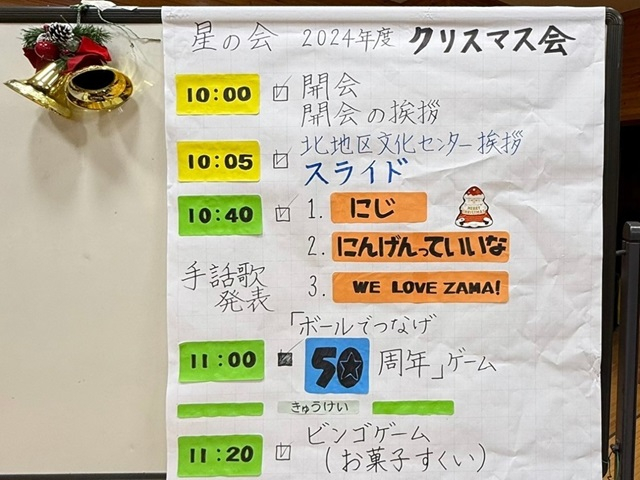 星の会 2024年度 クリスマス会
10:00 開会
開会の挨拶
北地区文化センター挨拶
10:05 スライド
10:40 1. にじ
2. にんげんっていいな
手話歌
発表
3. WE LOVE ZAMA!
「ボールでつなげ
11:00 50周年」ゲーム
きゅうけい
11:20 ビンゴゲーム
(お菓子すくい)